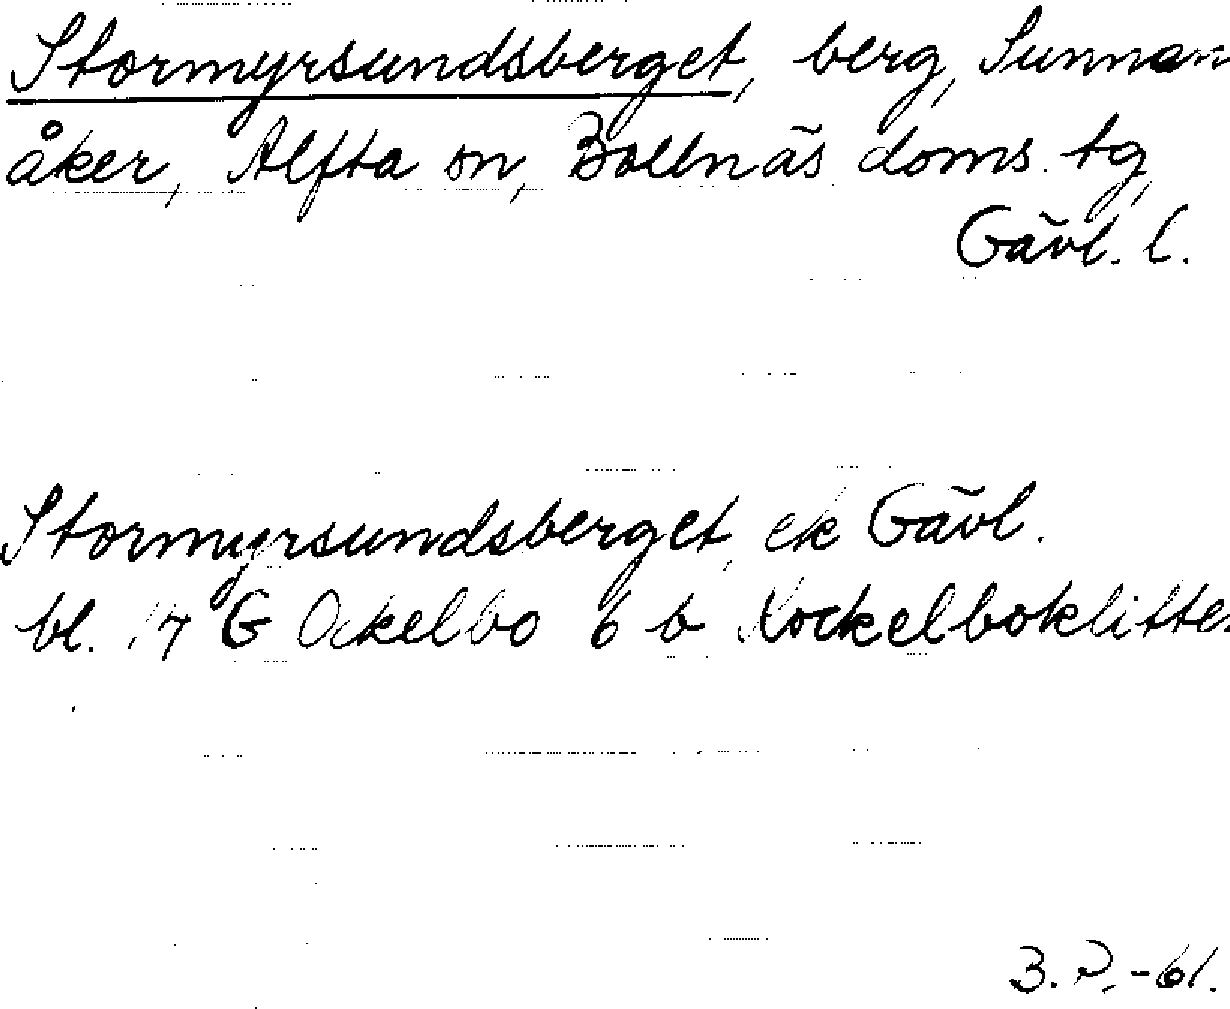 Stormyrsundsberget, berg, Sunnan
åker, Alfta sn, Bollnäs doms. tg,
Gävl. l.
Stormyrsundsberget, ek Gävl.
bl. 17 G Ockelbo 6 b Kockelboklitten
B. P. -61.